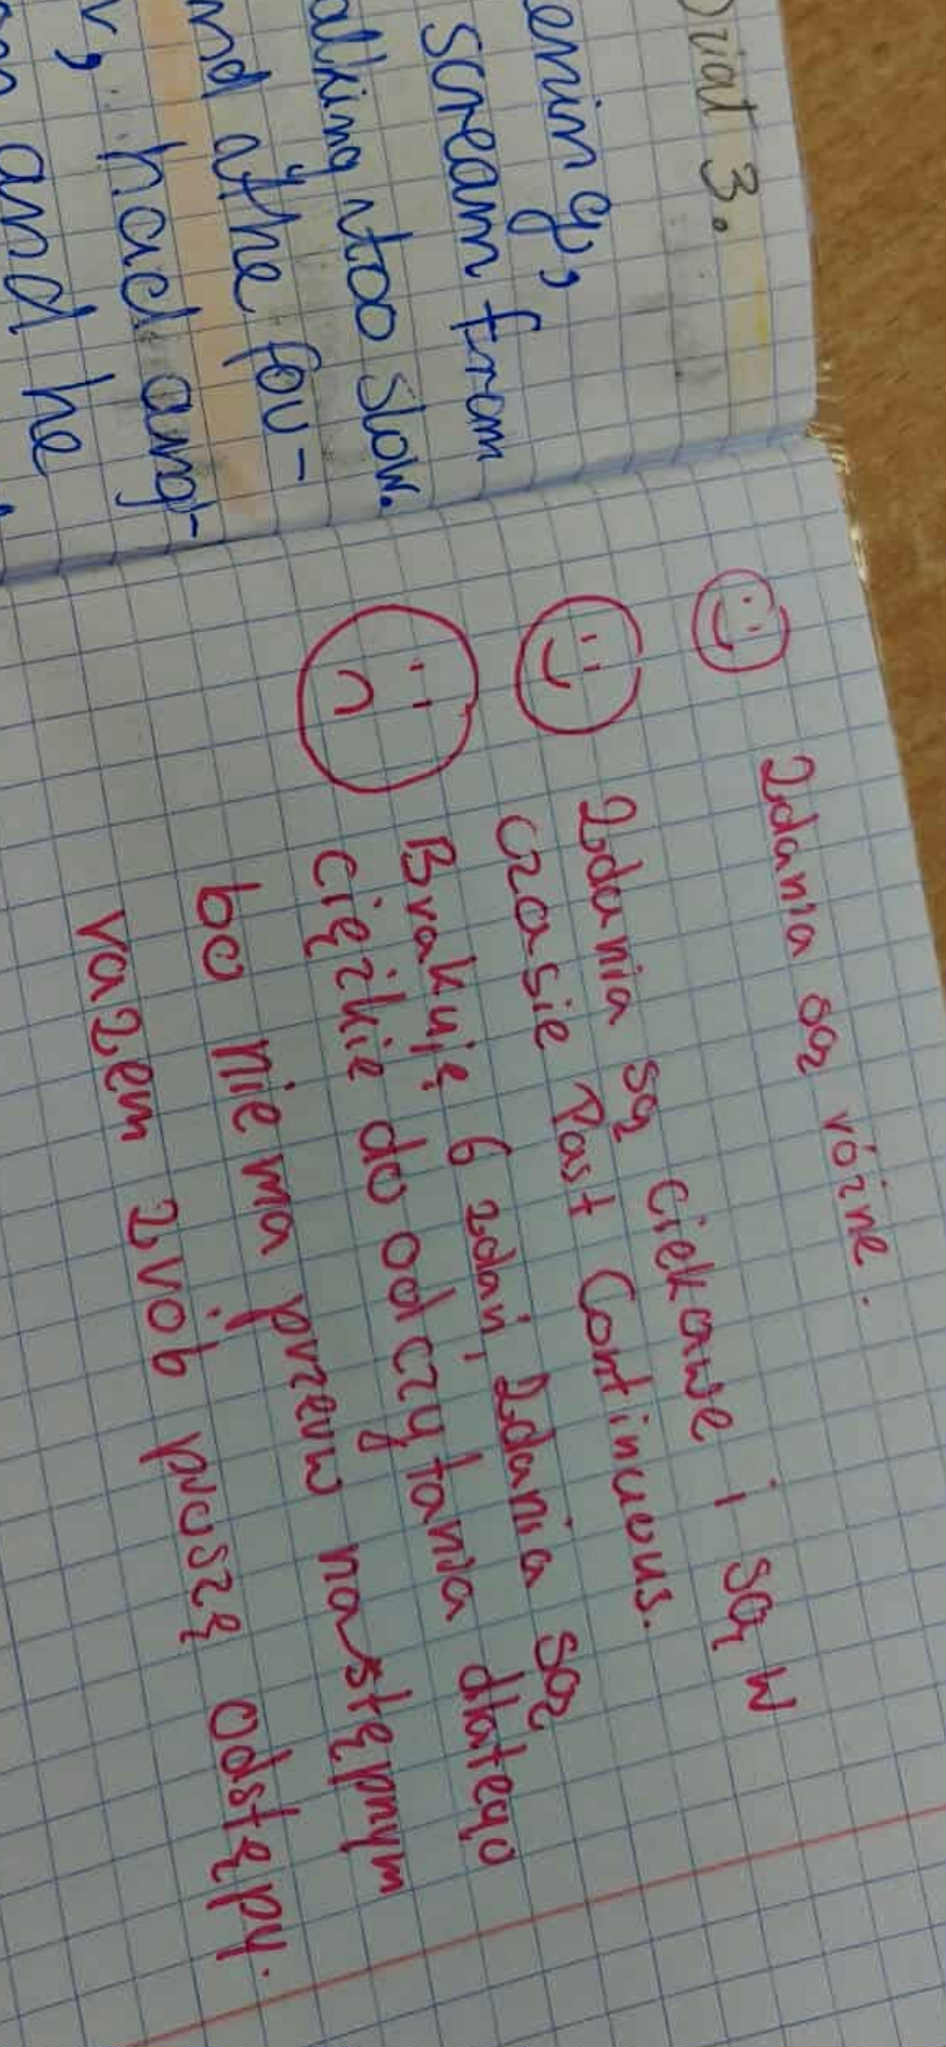 Dział 3.
ening,
scream from
alking too slow.
nd a the fou-
v, had ang-
and he
Zdania są różne.
Zdania są ciekawe i są w
czasie Past Continuous.
Brakuję 6 zdań, zdania są
ciężkie do odczytania dlatego
bo nie ma przerw następnym
razem zrób proszę odstępy.